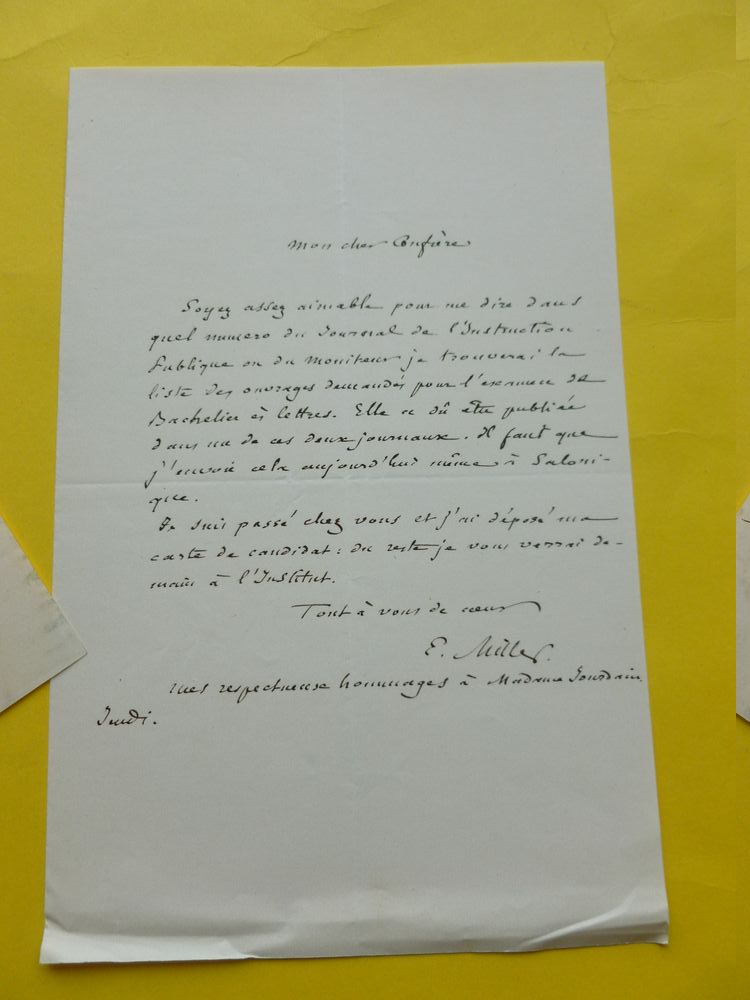 Mon cher Confrère
Soyez assez aimable pour me dire dans
quel numero du Journal de l'Instruction
Publique ou du Moniteur je trouverai la
liste des ouvrages demandés pour l'examen de
Bachelier ès lettres. Elle a dû être publiée
dans un de ces deux journaux. Il faut que
j'envoie cela aujourd'hui même à Saloni-
que.
Je suis passé chez vous et j'ai déposé ma
carte de candidat : du reste je vous verrai de-
main à l'Institut.
Tout à vous de cœur
E. Miller.
Mes respectueuse hommages à Madame Jourdain
Jeudi.